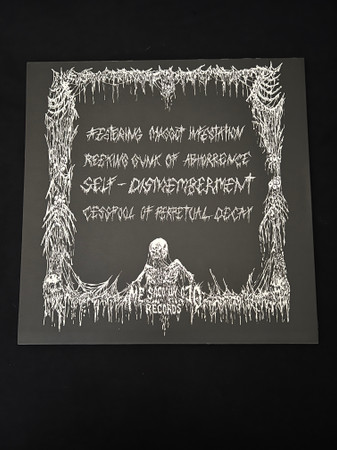 FESTERING MAGGOT INFESTATION
REEKING GUNK OF ABHORRENCE
SELF-DISMEMBERMENT
CESSPOOL OF PERPETUAL DECAY
ME SACO UN OJO
RECORDS